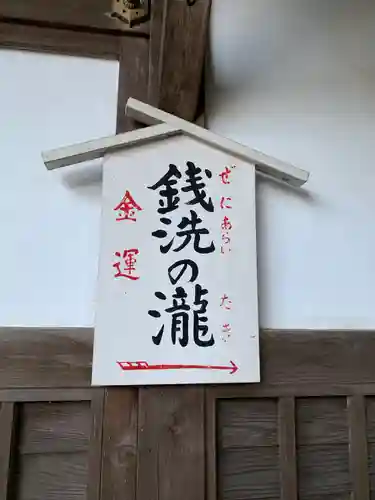 銭洗の瀧
ぜにあらい たき
金運